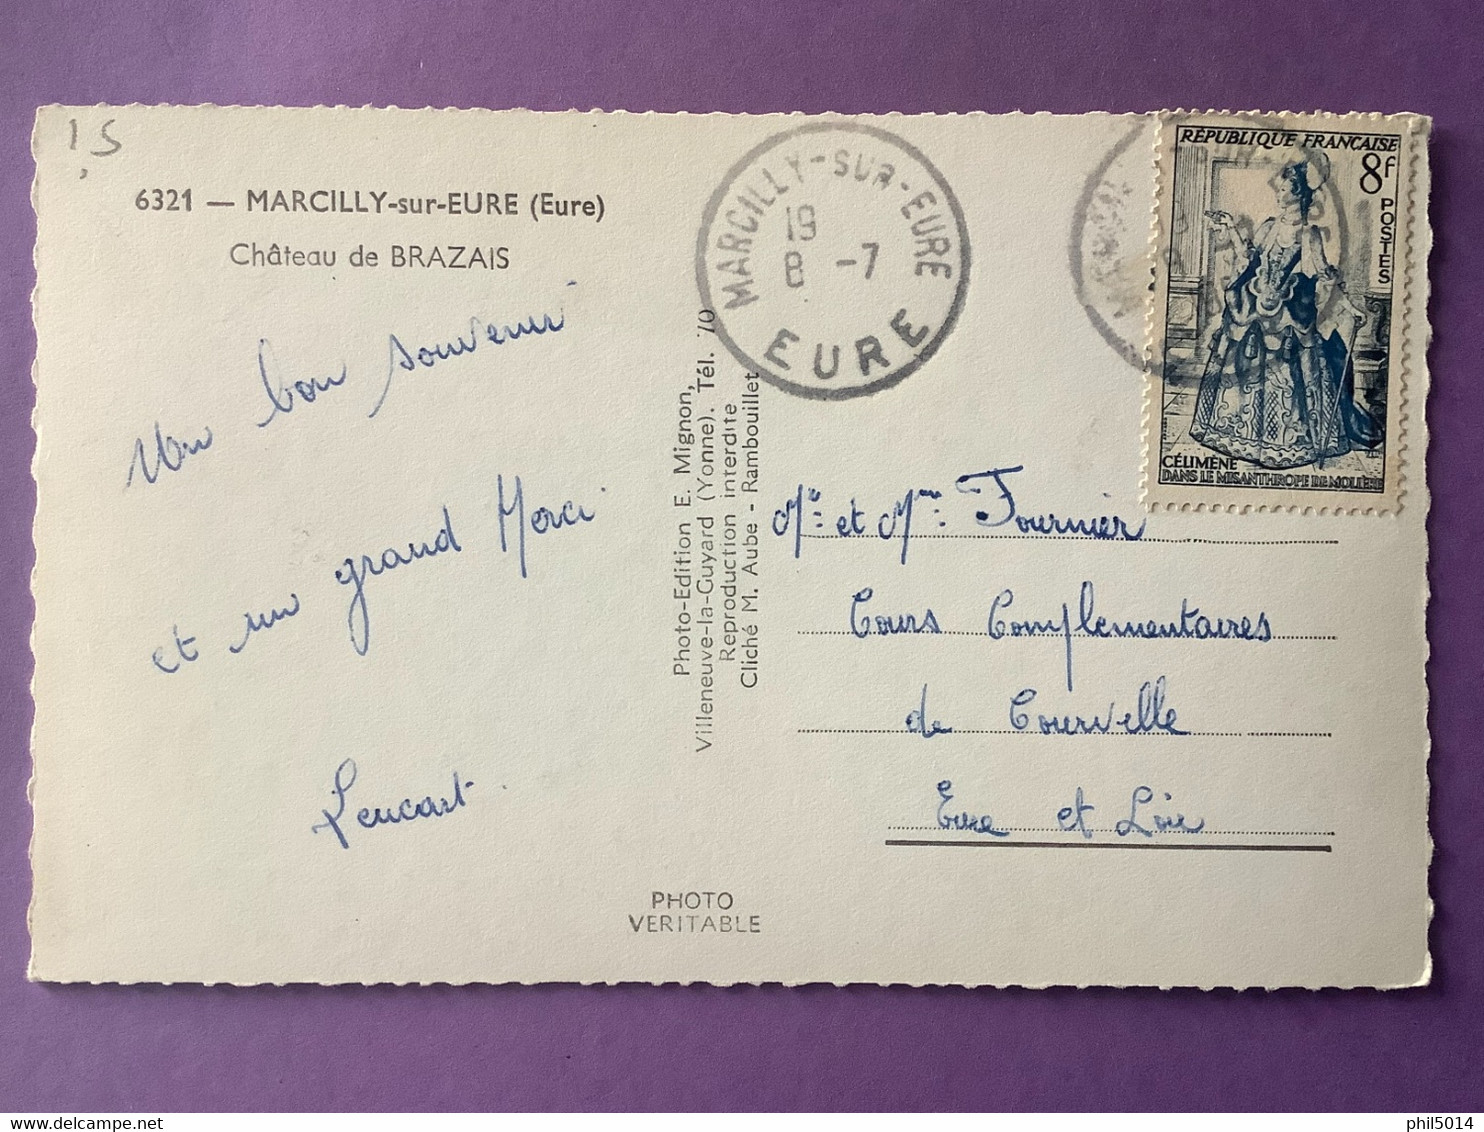 1,5
6321 — MARCILLY-sur-EURE (Eure)
Château de BRAZAIS
Un bon souvenir
et un grand Merci
Leucart.
Photo-Edition E. Mignon,
Villeneuve-la-Guyard (Yonne). Tél. 70
Reproduction interdite
Cliché M. Aube - Rambouillet
PHOTO
VERITABLE
MARCILLY-SUR-EURE
19
8 -7
EURE
RÉPUBLIQUE FRANÇAISE
8F
POSTES
CÉLIMÈNE
DANS LE MISANTHROPE DE MOLIÈRE
Mr et Mme Fournier
Cours Complementaires
de Courville
Eure et Loir
phil5014